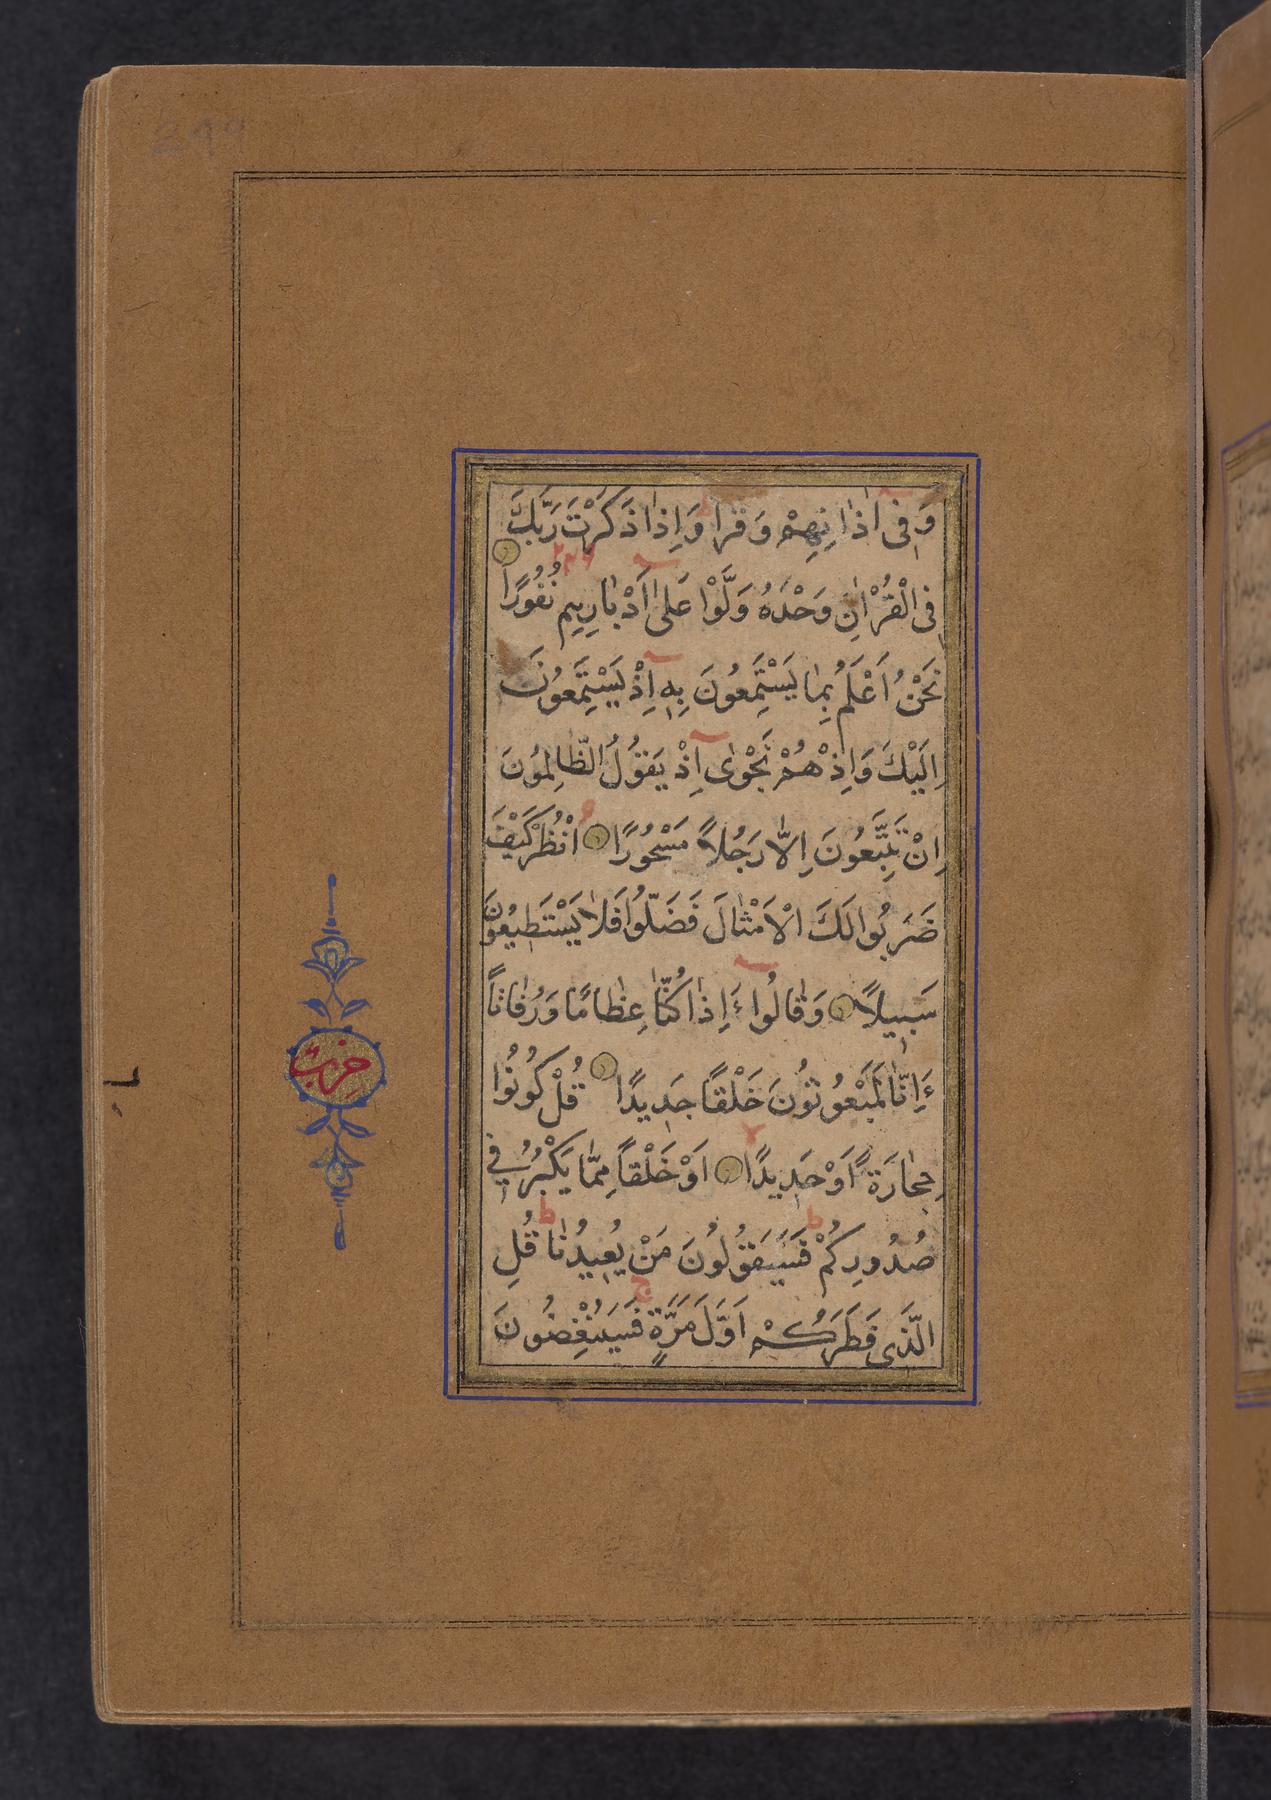 وَفِى اٰذٰانِهِمْ وَقْرا وَاِذٰا ذَكَرْتَ رَبَّكَ
فِى الْقُرْاٰنِ وَحْدَهُ وَلَّوْا عَلىٰ اَدْبٰارِهِم نُفُورًا
نَحْنُ اَعْلَمُ بِمٰا يَسْتَمِعُونَ بِهِ اِذْ يَسْتَمِعُونَ
اِلَيْكَ وَاِذْ هُمْ نَجْوٰى اِذْ يَقُولُ الظّٰالِمُونَ
اِنْ تَتَّبِعُونَ اِلاّٰ رَجُلاً مَسْحُورًا اُنْظُرْ كَيْفَ
ضَرَبُوا لَكَ الْاَمْثٰالَ فَضَلّوُا فَلاٰ يَسْتَطِيعُونَ
سَبِيلاً وَقٰالُوا ءَاِذٰا كُنّٰا عِظٰامًا وَرُفٰاتاً
ءَاِنّٰا لَمَبْعُوثوُنَ خَلْقًا جَدِيدًا قُلْ كُونُوا
حِجٰارَةً اَوْ حَدِيدًا اَوْ خَلْقاً مِمّٰا يَكْبُرُ فِي
صُدُورِكُمْ فَسَيَقُولُونَ مَنْ يُعِيدُنٰا قُلِ
الَّذِى فَطَرَكُمْ اَوَّلَ مَرَّةٍ فَسَيُنْغِضُونَ
حزب